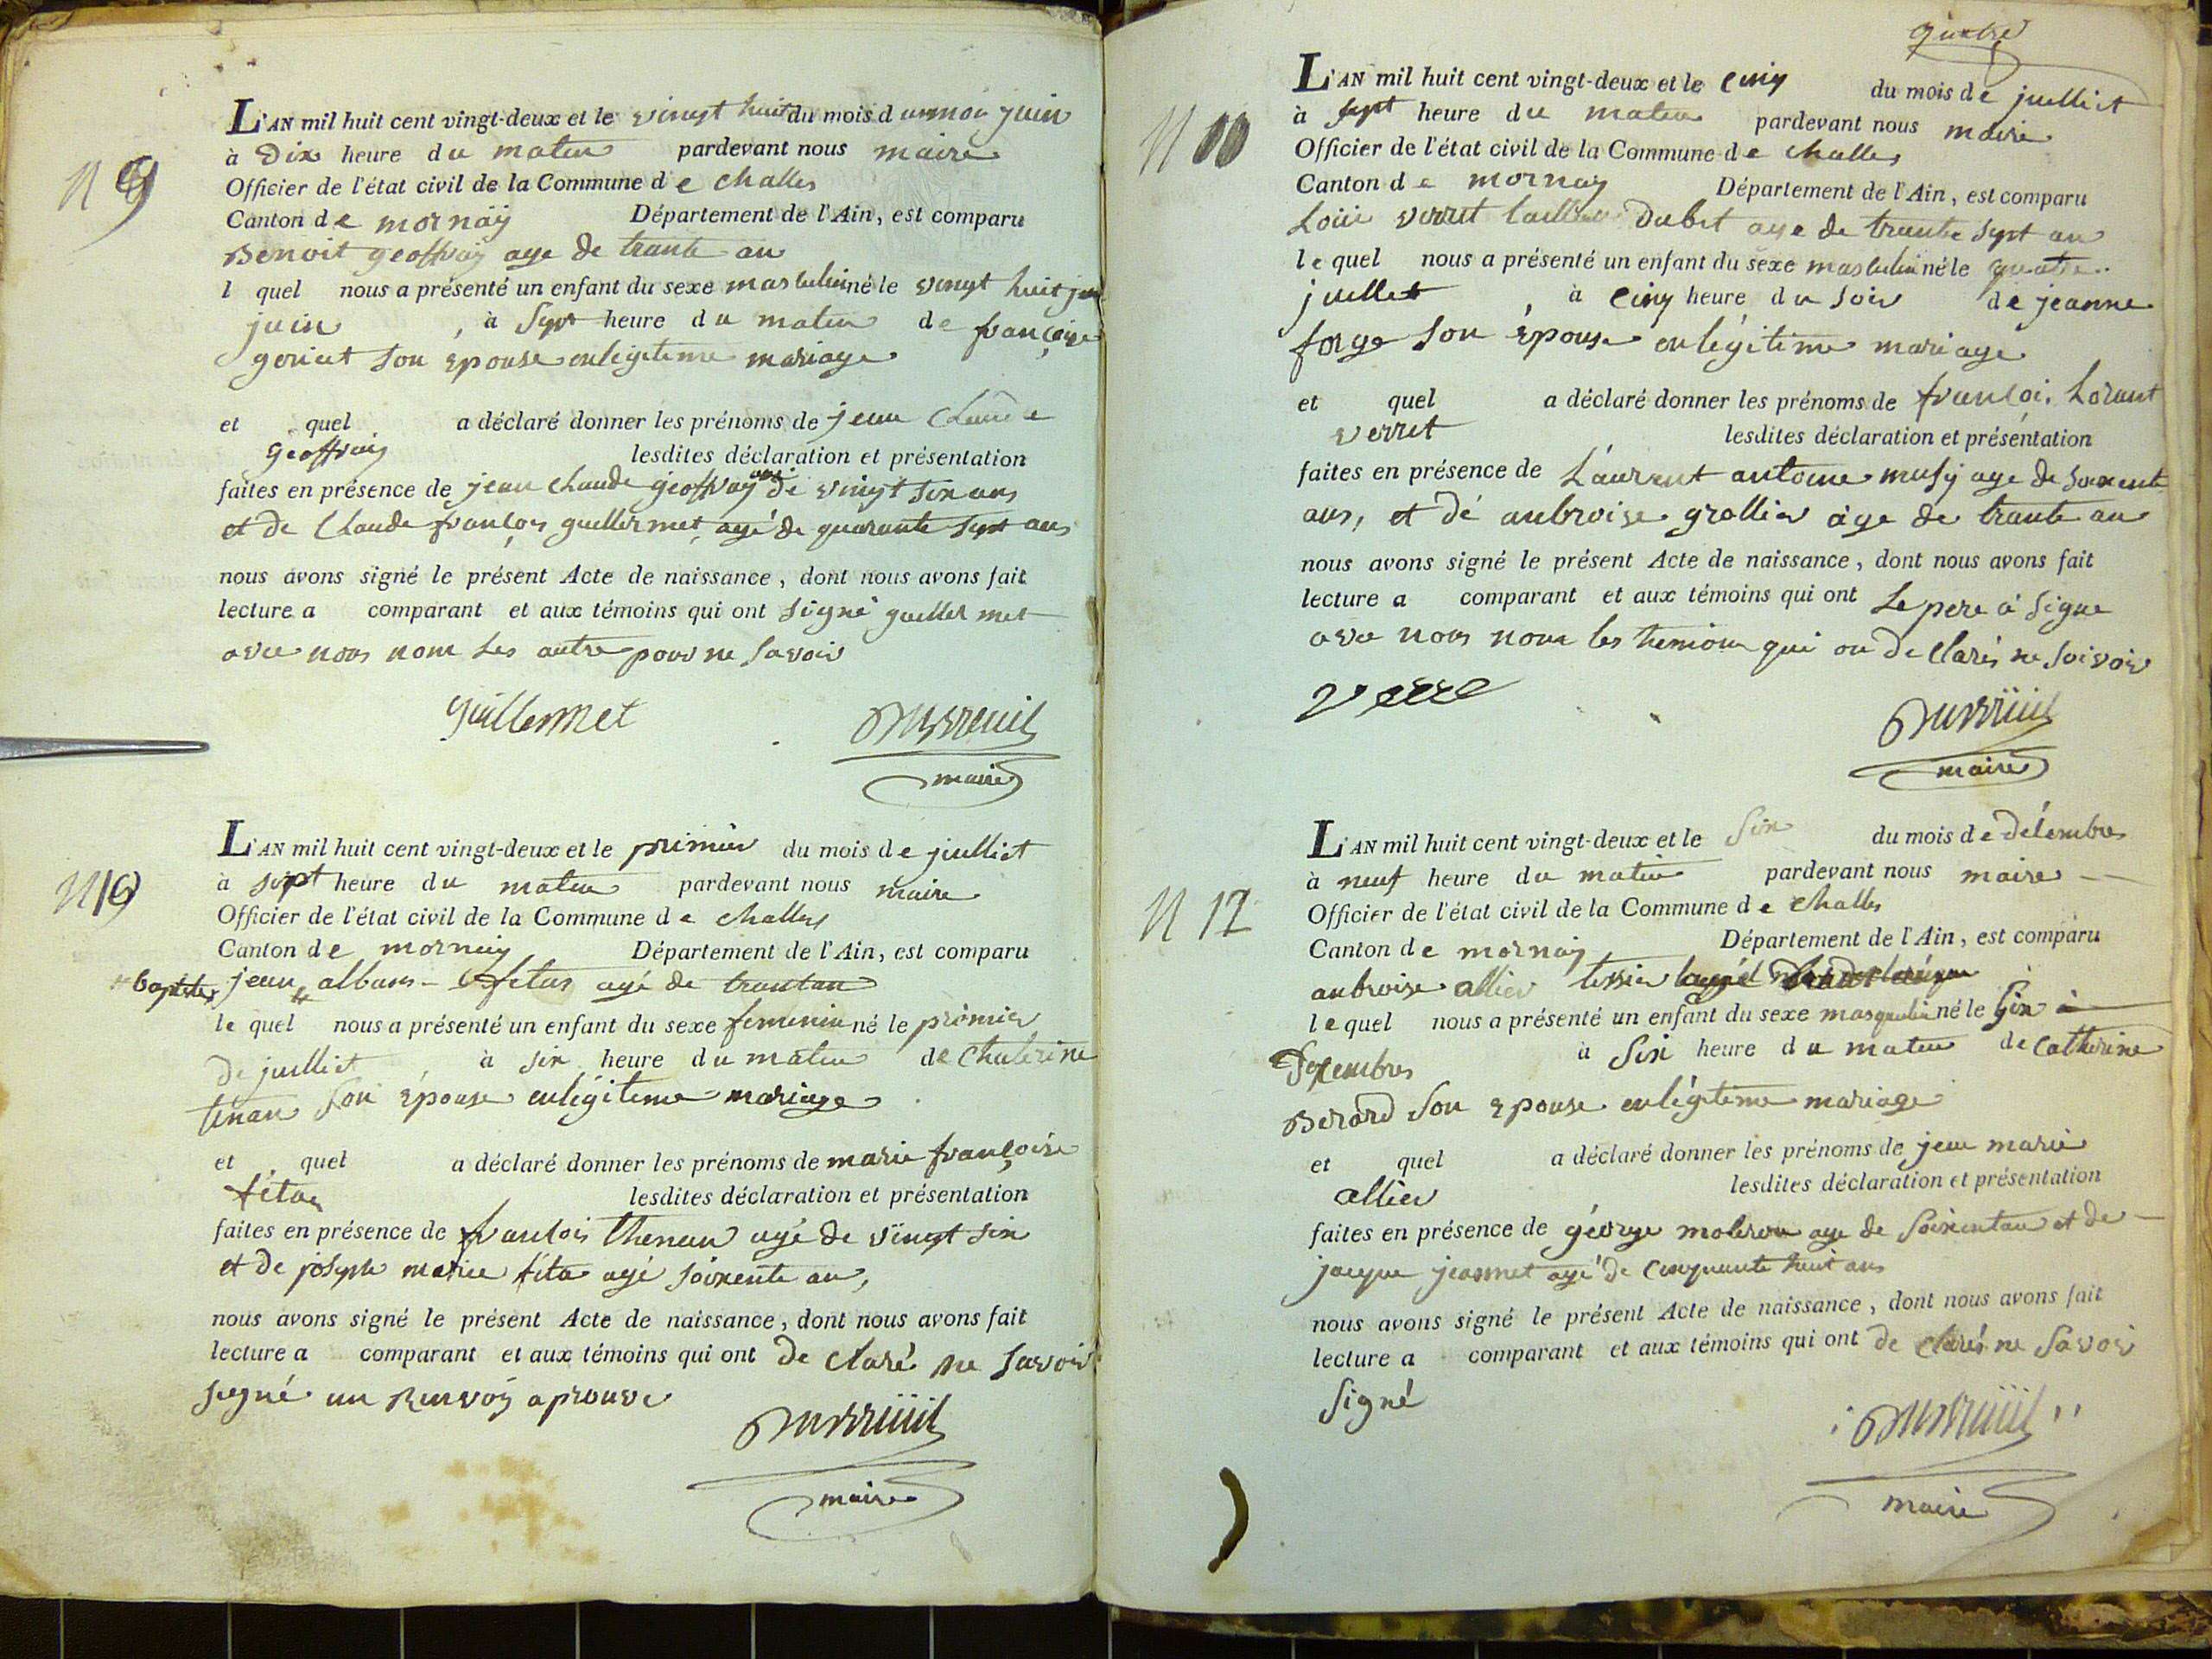 N 9
L'AN mil huit cent vingt-deux et le vingt huit du mois d juin
à Dix heure du matin pardevant nous maire
Officier de l'état civil de la Commune de challes
Canton de mornay Département de l'Ain, est comparu
Benoit geoffray age de trante an
l quel nous a présenté un enfant du sexe masculin né le vingt huit
juin, à sept heure du matin de françoise
goriat son épouse en legitime mariage
et quel a déclaré donner les prénoms de jean Claude
Geoffray lesdites déclaration et présentation
faites en présence de jean claude geoffray de vingt six ans
et de Claude françois guillermet, agé de quarante sept ans
nous avons signé le présent Acte de naissance, dont nous avons fait
lecture a comparant et aux témoins qui ont signé guillermet
avec nous non les autre pour ne savoir
guillermet Dubreuil
maire
N 10
L'AN mil huit cent vingt-deux et le primier du mois de julliet
à sept heure du matin pardevant nous maire
Officier de l'état civil de la Commune de challes
Canton de mornay Département de l'Ain, est comparu
baptiste jean alban fetas agé de trantan
le quel nous a présenté un enfant du sexe feminin né le primier
de julliet à six heure du matin de Chaterine
tenan son épouse en légitime mariage
et quel a déclaré donner les prénoms de marie françoise
fétas lesdites déclaration et présentation
faites en présence de francois thenan agé de vingt six
et de joseph marie féta agé soixente an,
nous avons signé le présent Acte de naissance, dont nous avons fait
lecture a comparant et aux témoins qui ont de claré ne savoir
signé un Renvoy aprouve
Dubreuil
maire
quatre
N 11
L'AN mil huit cent vingt-deux et le cinq du mois de julliet
à sept heure du matin pardevant nous maire
Officier de l'état civil de la Commune de challes
Canton de mornay Département de l'Ain, est comparu
Loui verret age de trante sept an
le quel nous a présenté un enfant du sexe masculin né le quatre
juillet, à cinq heure du soir de jeanne
forge son épouse en légitime mariage
et quel a déclaré donner les prénoms de françoi Lorant
verret lesdites déclaration et présentation
faites en présence de Laurent antoine musy age de soixent
ans, et dé anbroise grollier age de trante an
nous avons signé le présent Acte de naissance, dont nous avons fait
lecture a comparant et aux témoins qui ont Le pere a signe
avec nous non les temoin qui on de clarés ne soivoir
verre
Dubreuil
maire
N 12
L'AN mil huit cent vingt-deux et le six du mois de décembres
à neuf heure du matin pardevant nous maire
Officier de l'état civil de la Commune de challes
Canton de mornay Département de l'Ain, est comparu
anbroise allier
le quel nous a présenté un enfant du sexe masqulin né le six
à six heure du matin de Catherine
Berard son épouse en légitime mariage
et quel a déclaré donner les prénoms de jean marie
allier lesdites déclaration et présentation
faites en présence de géorge moleron age de soixentan et de
jacque jeannet agé de cinquante huit ans
nous avons signé le présent Acte de naissance, dont nous avons fait
lecture a comparant et aux témoins qui ont de clarés ne savoir
signé
Dubreuil
maire